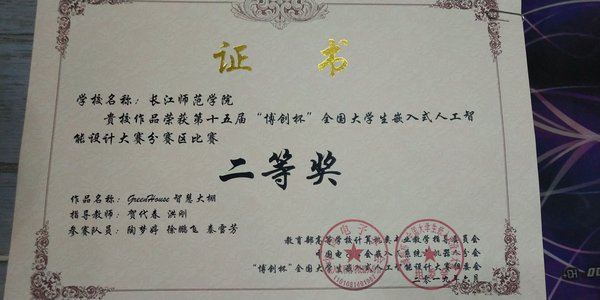 证 书
学校名称：长江师范学院
贵校作品荣获第十五届“博创杯”全国大学生嵌入式人工智
能设计大赛分赛区比赛
二等奖
作品名称：GreenHouse 智慧大棚
指导教师：贺代春 洪刚
参赛队员：陶梦婷 徐鹏飞 秦雪芳
教育部高等学校计算机类专业教学指导委员会
中国电子学会嵌入式系统与机器人分会
“博创杯”全国大学生嵌入式人工智能设计大赛组委会
二零一九年七月